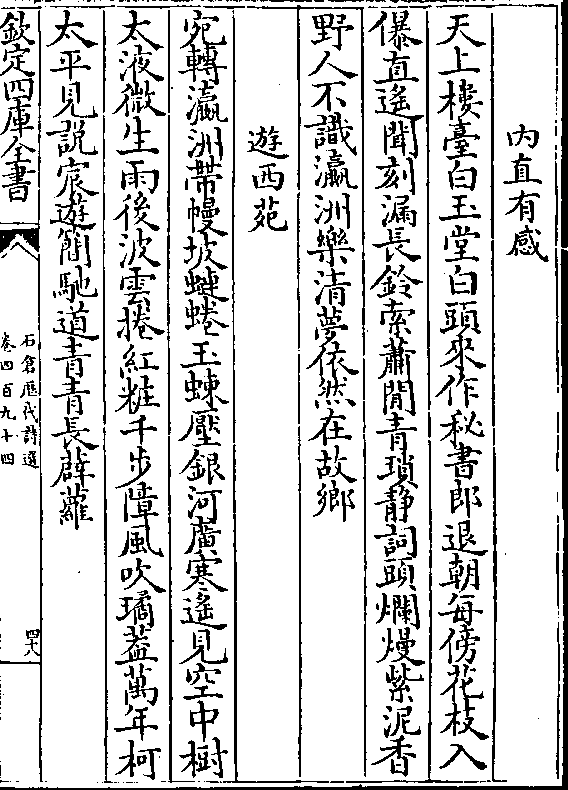 內直有感
天上樓臺白玉堂白頭來作秘書郎退朝每傍花枝入
㬥直遙聞刻漏長鈴索蕭閒青瑣静詞頭爛熳紫泥香
野人不識瀛洲樂清夢依然在故鄉
遊西苑
宛轉瀛洲帶幔坡蝀蜷玉蝀壓銀河廣寒遙見空中樹
太液微生雨後波雲捲紅粧千步障風吹璚葢萬年柯
太平見説宸遊簡馳道青青長薜蘿
欽定四庫全書
石倉歴代詩選
卷四百九十四
四十八